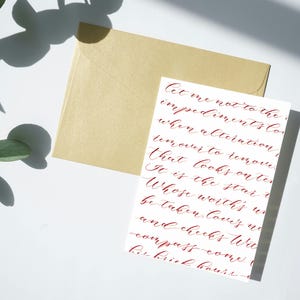 let me not to the
impediments lo
when alteration
remover to remove
That looks on te
It is the star
Whose worth's u
be taken love's no
and cheeks W
compass come
his brief hours